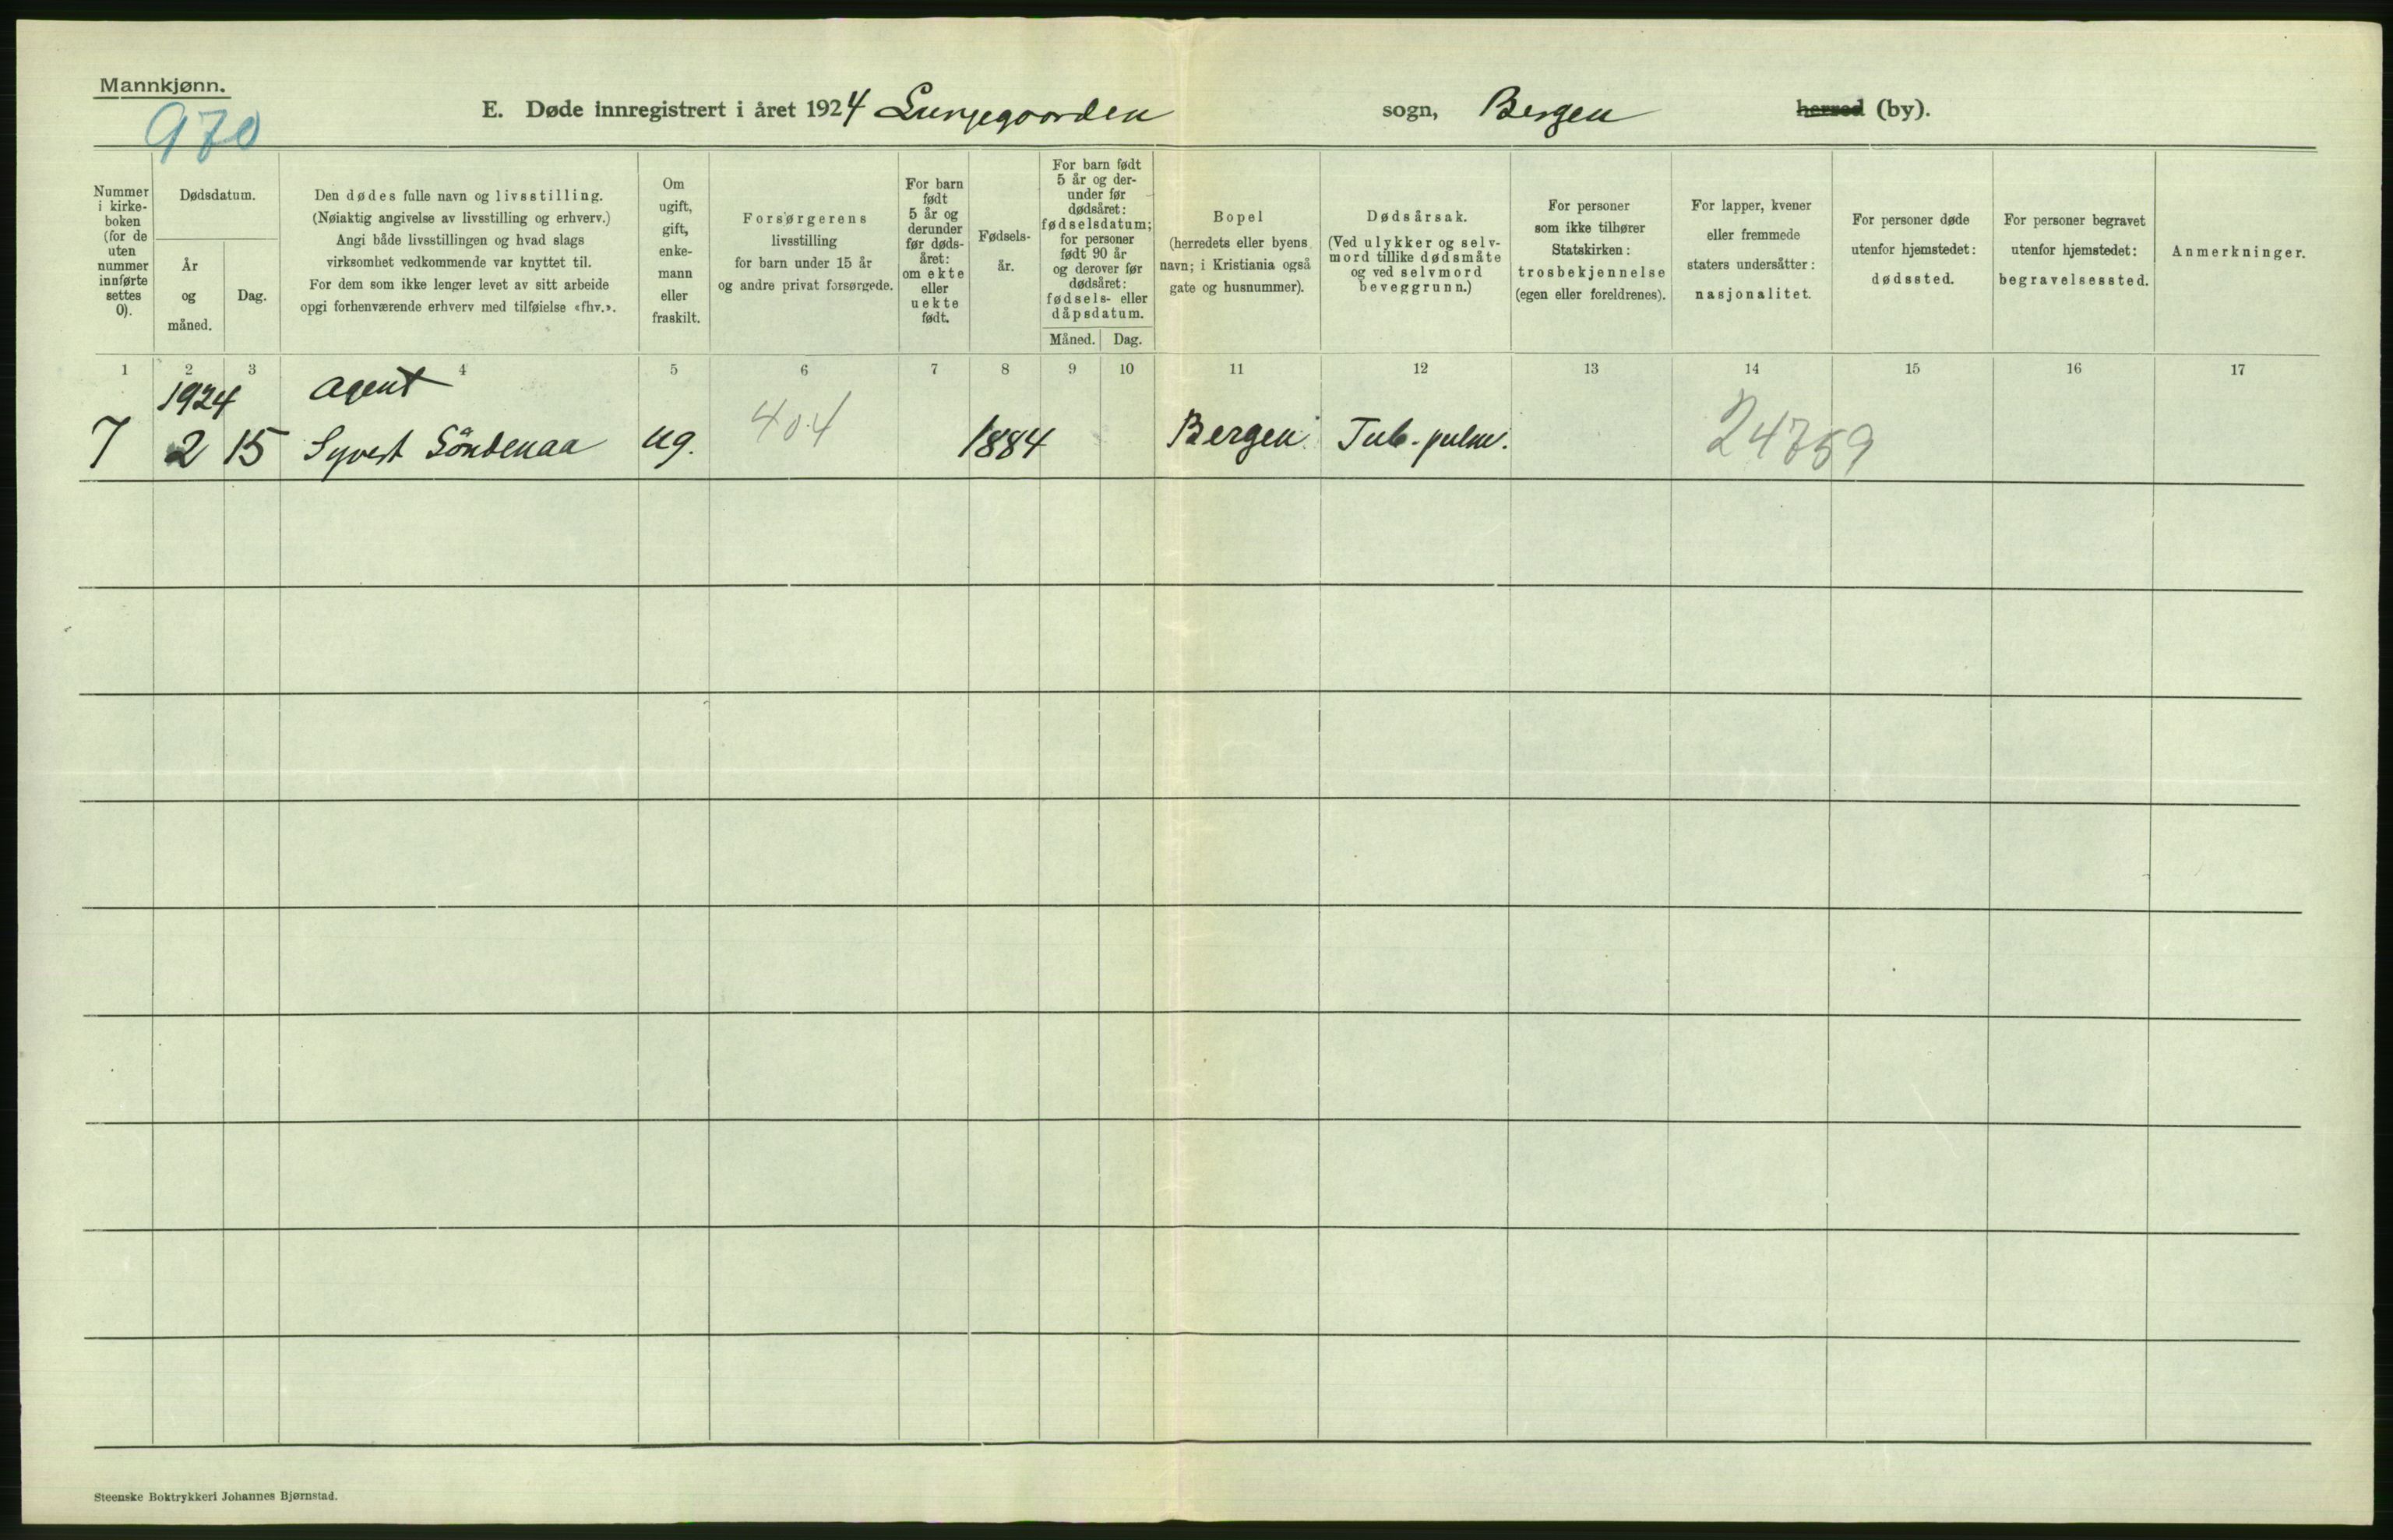 Mannkjønn.
970
E. Døde innregistrert i året 1924 Lungegaarden sogn, Bergen herred (by).
Nummer
i kirke-
boken
(for de
uten
nummer
innførte
settes
0).
Dødsdatum.
År
og
måned.
Dag.
Den dødes fulle navn og livsstilling.
(Nøiaktig angivelse av livsstilling og erhverv.)
Angi både livsstillingen og hvad slags
virksomhet vedkommende var knyttet til.
For dem som ikke lenger levet av sitt arbeide
opgi forhenværende erhverv med tilføielse «fhv.».
Om
ugift,
gift,
enke-
mann
eller
fraskilt.
Forsørgerens
livsstilling
for barn under 15 år
og andre privat forsørgede.
For barn
født
5 år og
derunder
før døds-
året:
om ekte
eller
uekte
født.
Fødsels-
år.
For barn født
5 år og der-
under før
dødsåret:
fødselsdatum;
for personer
født 90 år
og derover før
dødsåret:
fødsels- eller
dåpsdatum.
Måned. Dag.
Bopel
(herredets eller byens
navn; i Kristiania også
gate og husnummer).
Dødsårsak.
(Ved ulykker og selv-
mord tillike dødsmåte
og ved selvmord
beveggrunn.)
For personer
som ikke tilhører
Statskirken:
trosbekjennelse
(egen eller foreldrenes).
For lapper, kvener
eller fremmede
staters undersåtter:
nasjonalitet.
For personer døde
utenfor hjemstedet:
dødssted.
For personer begravet
utenfor hjemstedet:
begravelsessted.
Anmerkninger.
1 2 3 4 5 6 7 8 9 10 11 12 13 14 15 16 17
1924 agent
7 2 15 Syvert Söndenaa ug. 404 1884 Bergen. Tub. pulm. 24759
Steenske Boktrykkeri Johannes Bjørnstad.